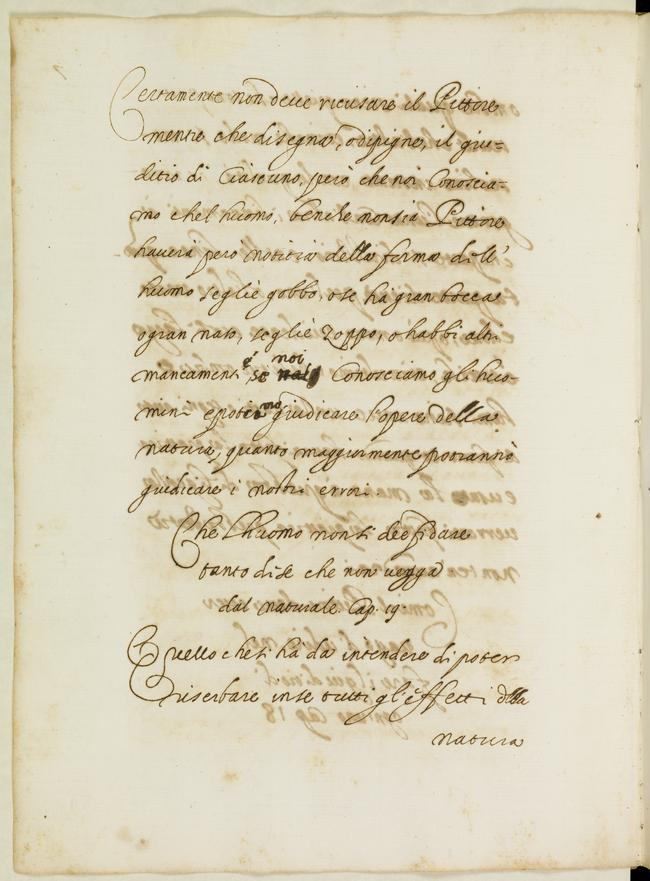 Certamente non deve ricusare il Pittore
mentre che disegna, o dipigne, il giu=
ditio di Ciascuno, però che noi Conoscia=
mo chel huomo, benche non sia Pittore
haverà però notitia della forma dell'
huomo seglie gobbo, o se ha gran bocca
o gran naso, seglie Zoppo, o habbi altri
mancamenti é se noi Conosciamo gli huo=
mini e poterno giudicare l'opere della
natura, quanto maggiormente potranno
giudicare i nostri errori
Che L'huomo non si dee fidare
tanto di se che non vegga
dal naturale. Cap. 19.
Quello che si hà da intendere di poter
riserbare in se tutti gl'effetti della
natura